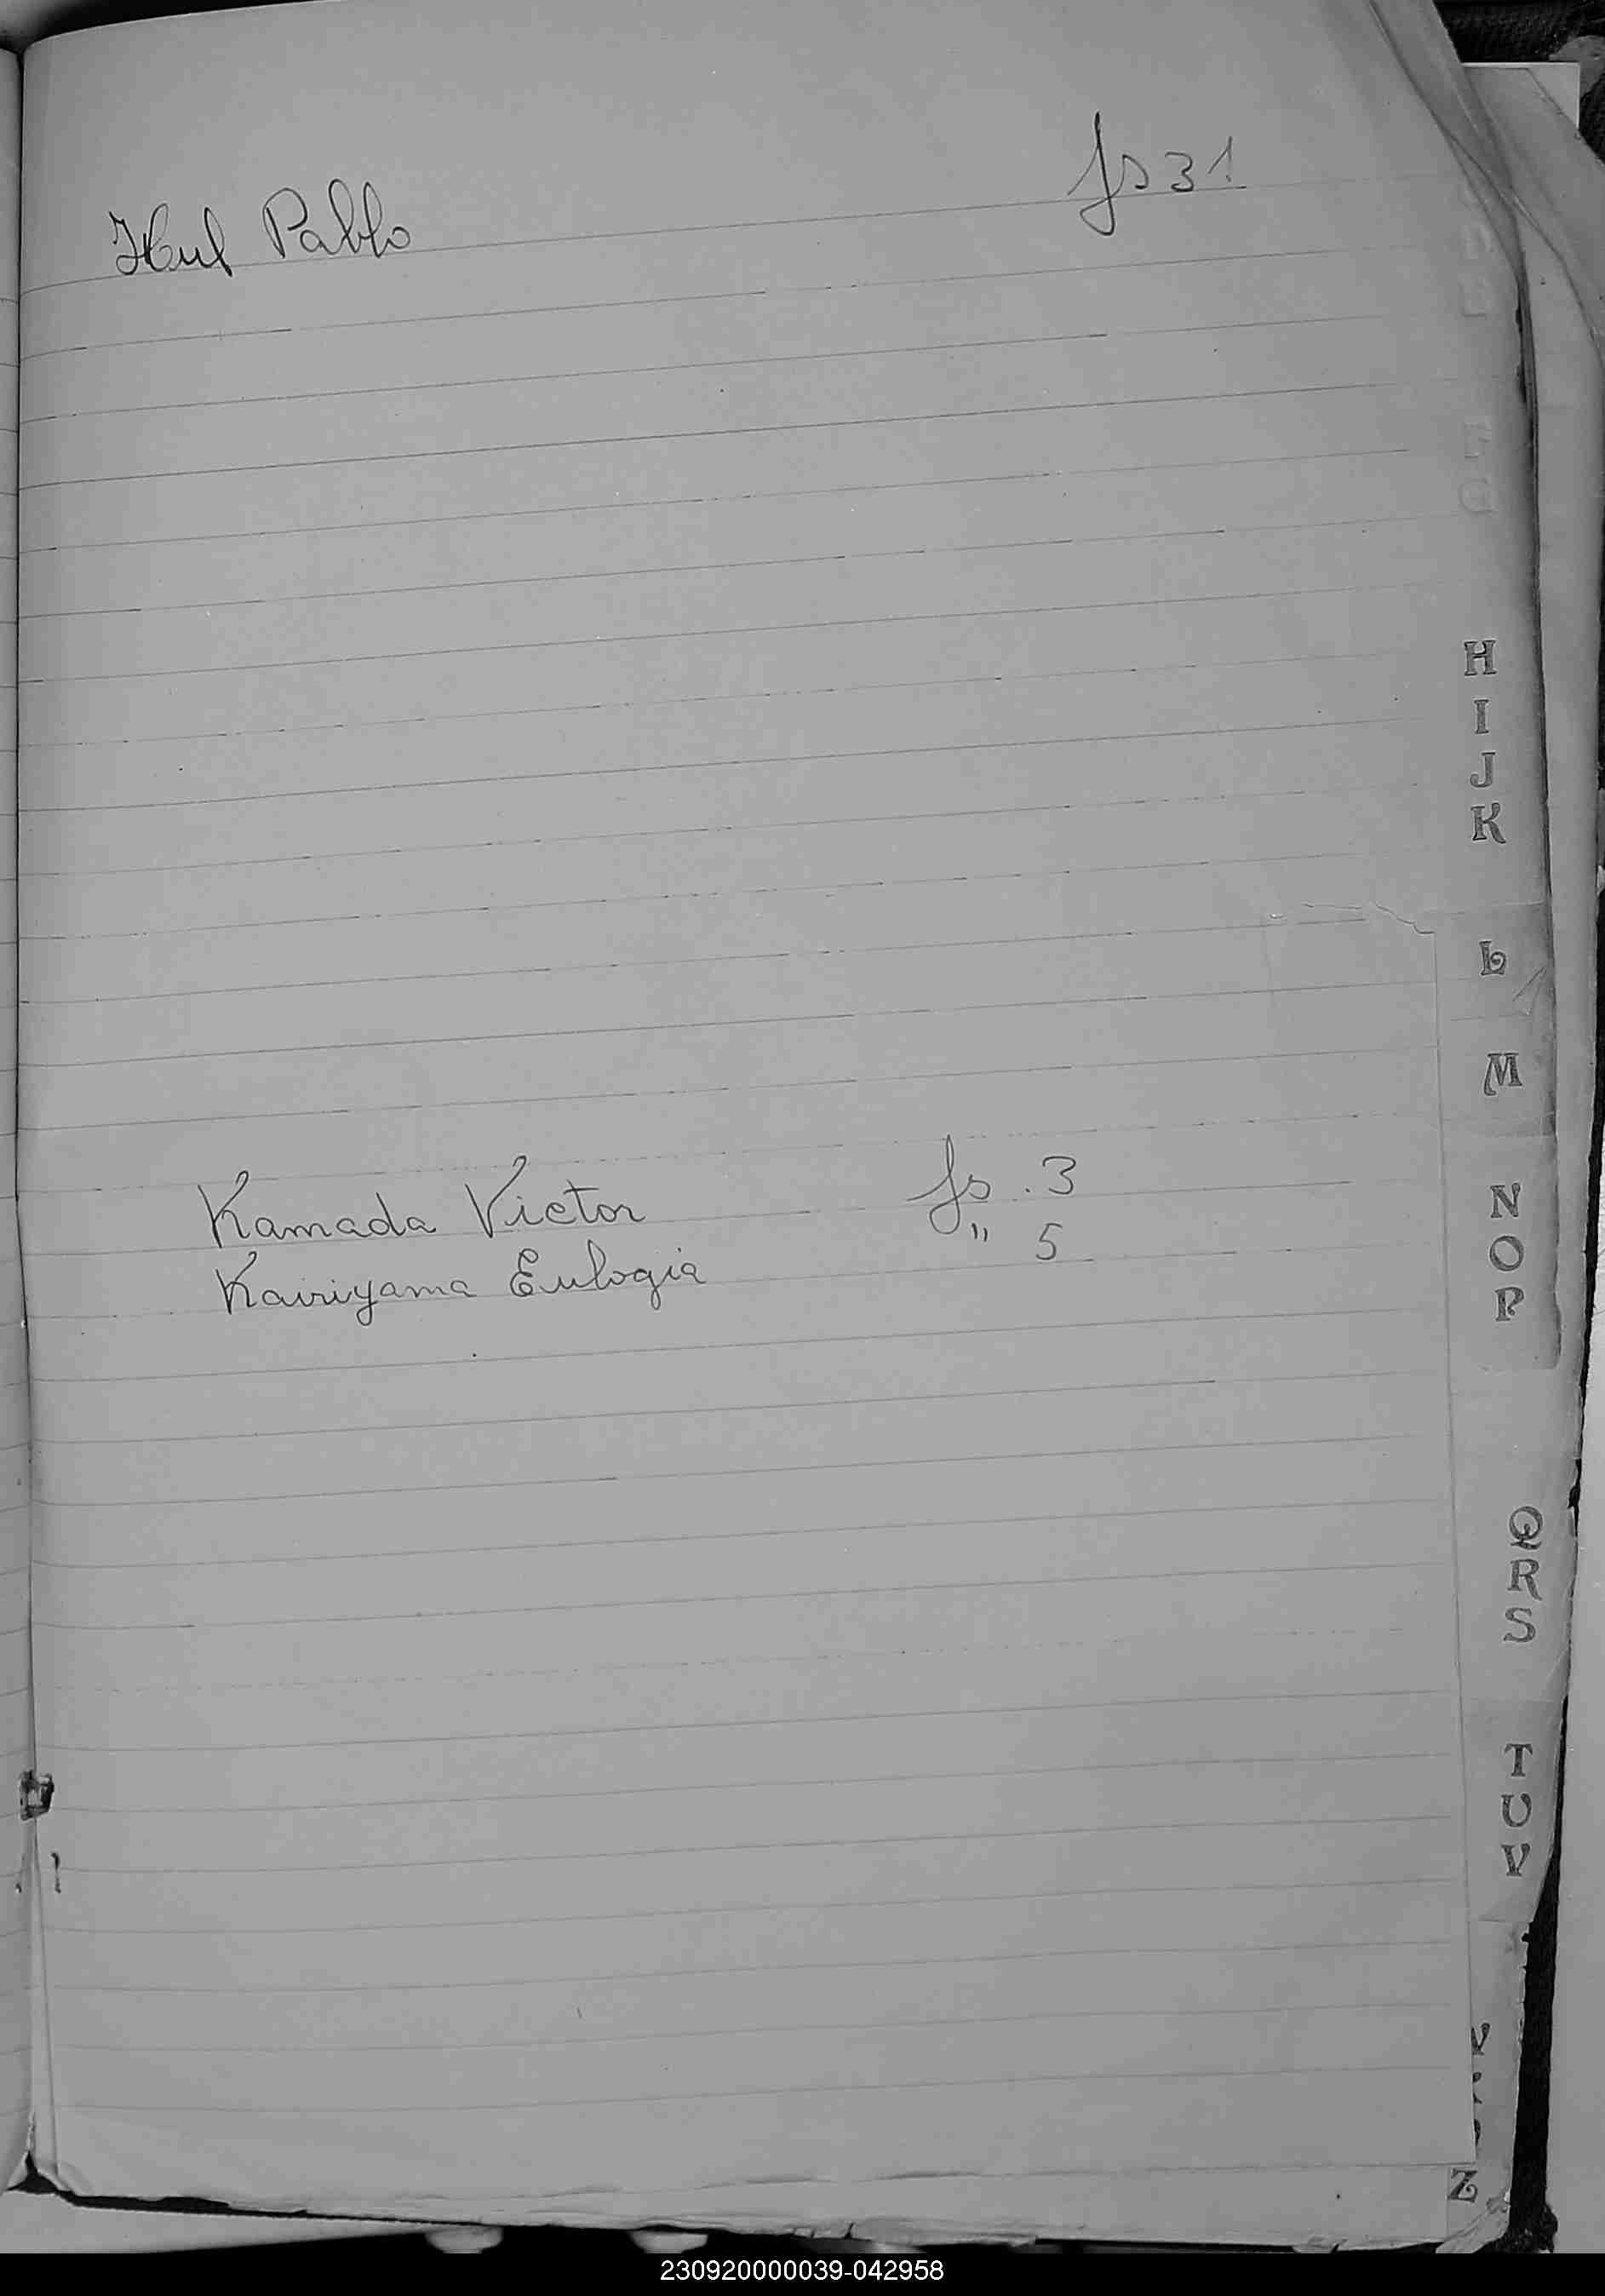 Hul Pablo fs 31
Kamada Victor fs. 3
Kairiyama Eulogia " 5
H
I
J
K
L
M
N
O
P
Q
R
S
T
U
V
Z
230920000039-042958